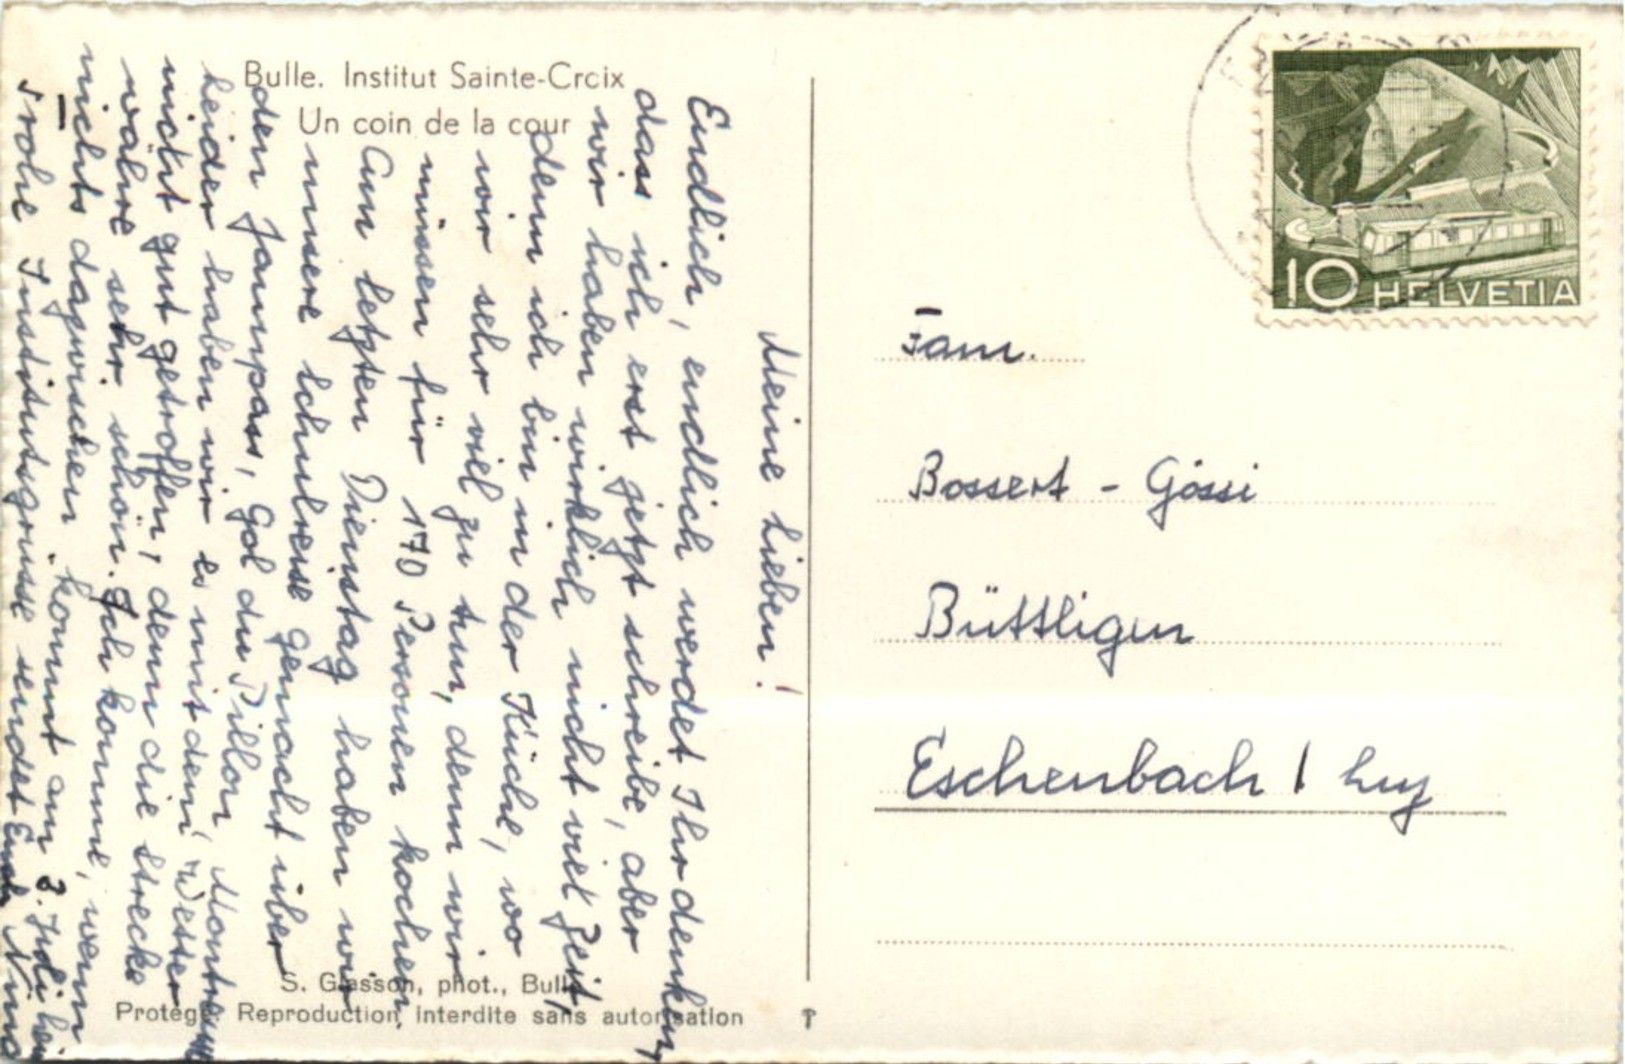 Bulle. Institut Sainte-Crcix
Un coin de la cour
Meine Lieben!
Endlich, endlich werdet Ihr denken,
dass ich erst jetzt schreibe, aber
wir haben wirklich nicht viel Zeit,
denn ich bin in der Küche, wo
wir sehr viel zu tun, denn wir
müssen für 170 Personen kochen.
Am letzten Dienstag haben wir
unsere Schulreise gemacht über
den Jaunpass, Col du Pillon, Montreux
Leider haben wir es mit dem Wetter
nicht gut getroffen, denn die Strecke
währe sehr schön. Ich komme, wenn
nichts dazwischen kommt am 3. Juli heim
Frohe Institutsgrüsse sendet Euch Nina
S. Glasson, phot., Bulle
Protégé. Reproduction interdite sans autorisation
10 HELVETIA
Fam.
Bossert - Gössi
Büttligen
Eschenbach / Luz